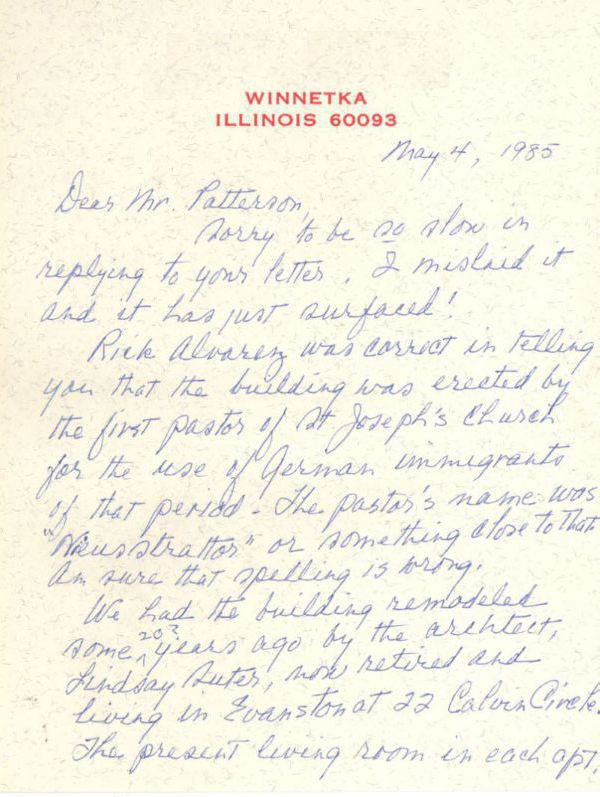 WINNETKA
ILLINOIS 60093
May 4, 1985
Dear Mr. Patterson,
Sorry to be so slow in
replying to your letter. I mislaid it
and it has just surfaced!
Rick Alvarez was correct in telling
you that the building was erected by
the first pastor of St Joseph's Church
for the use of German immigrants
of that period - The pastor's name was
" " or something close to that.
Am sure that spelling is wrong.
We had the building remodeled
some 20? years ago by the architect,
Lindsay Suter, now retired and
living in Evanston at 22 Calvin Circle.
The present living room in each apt.